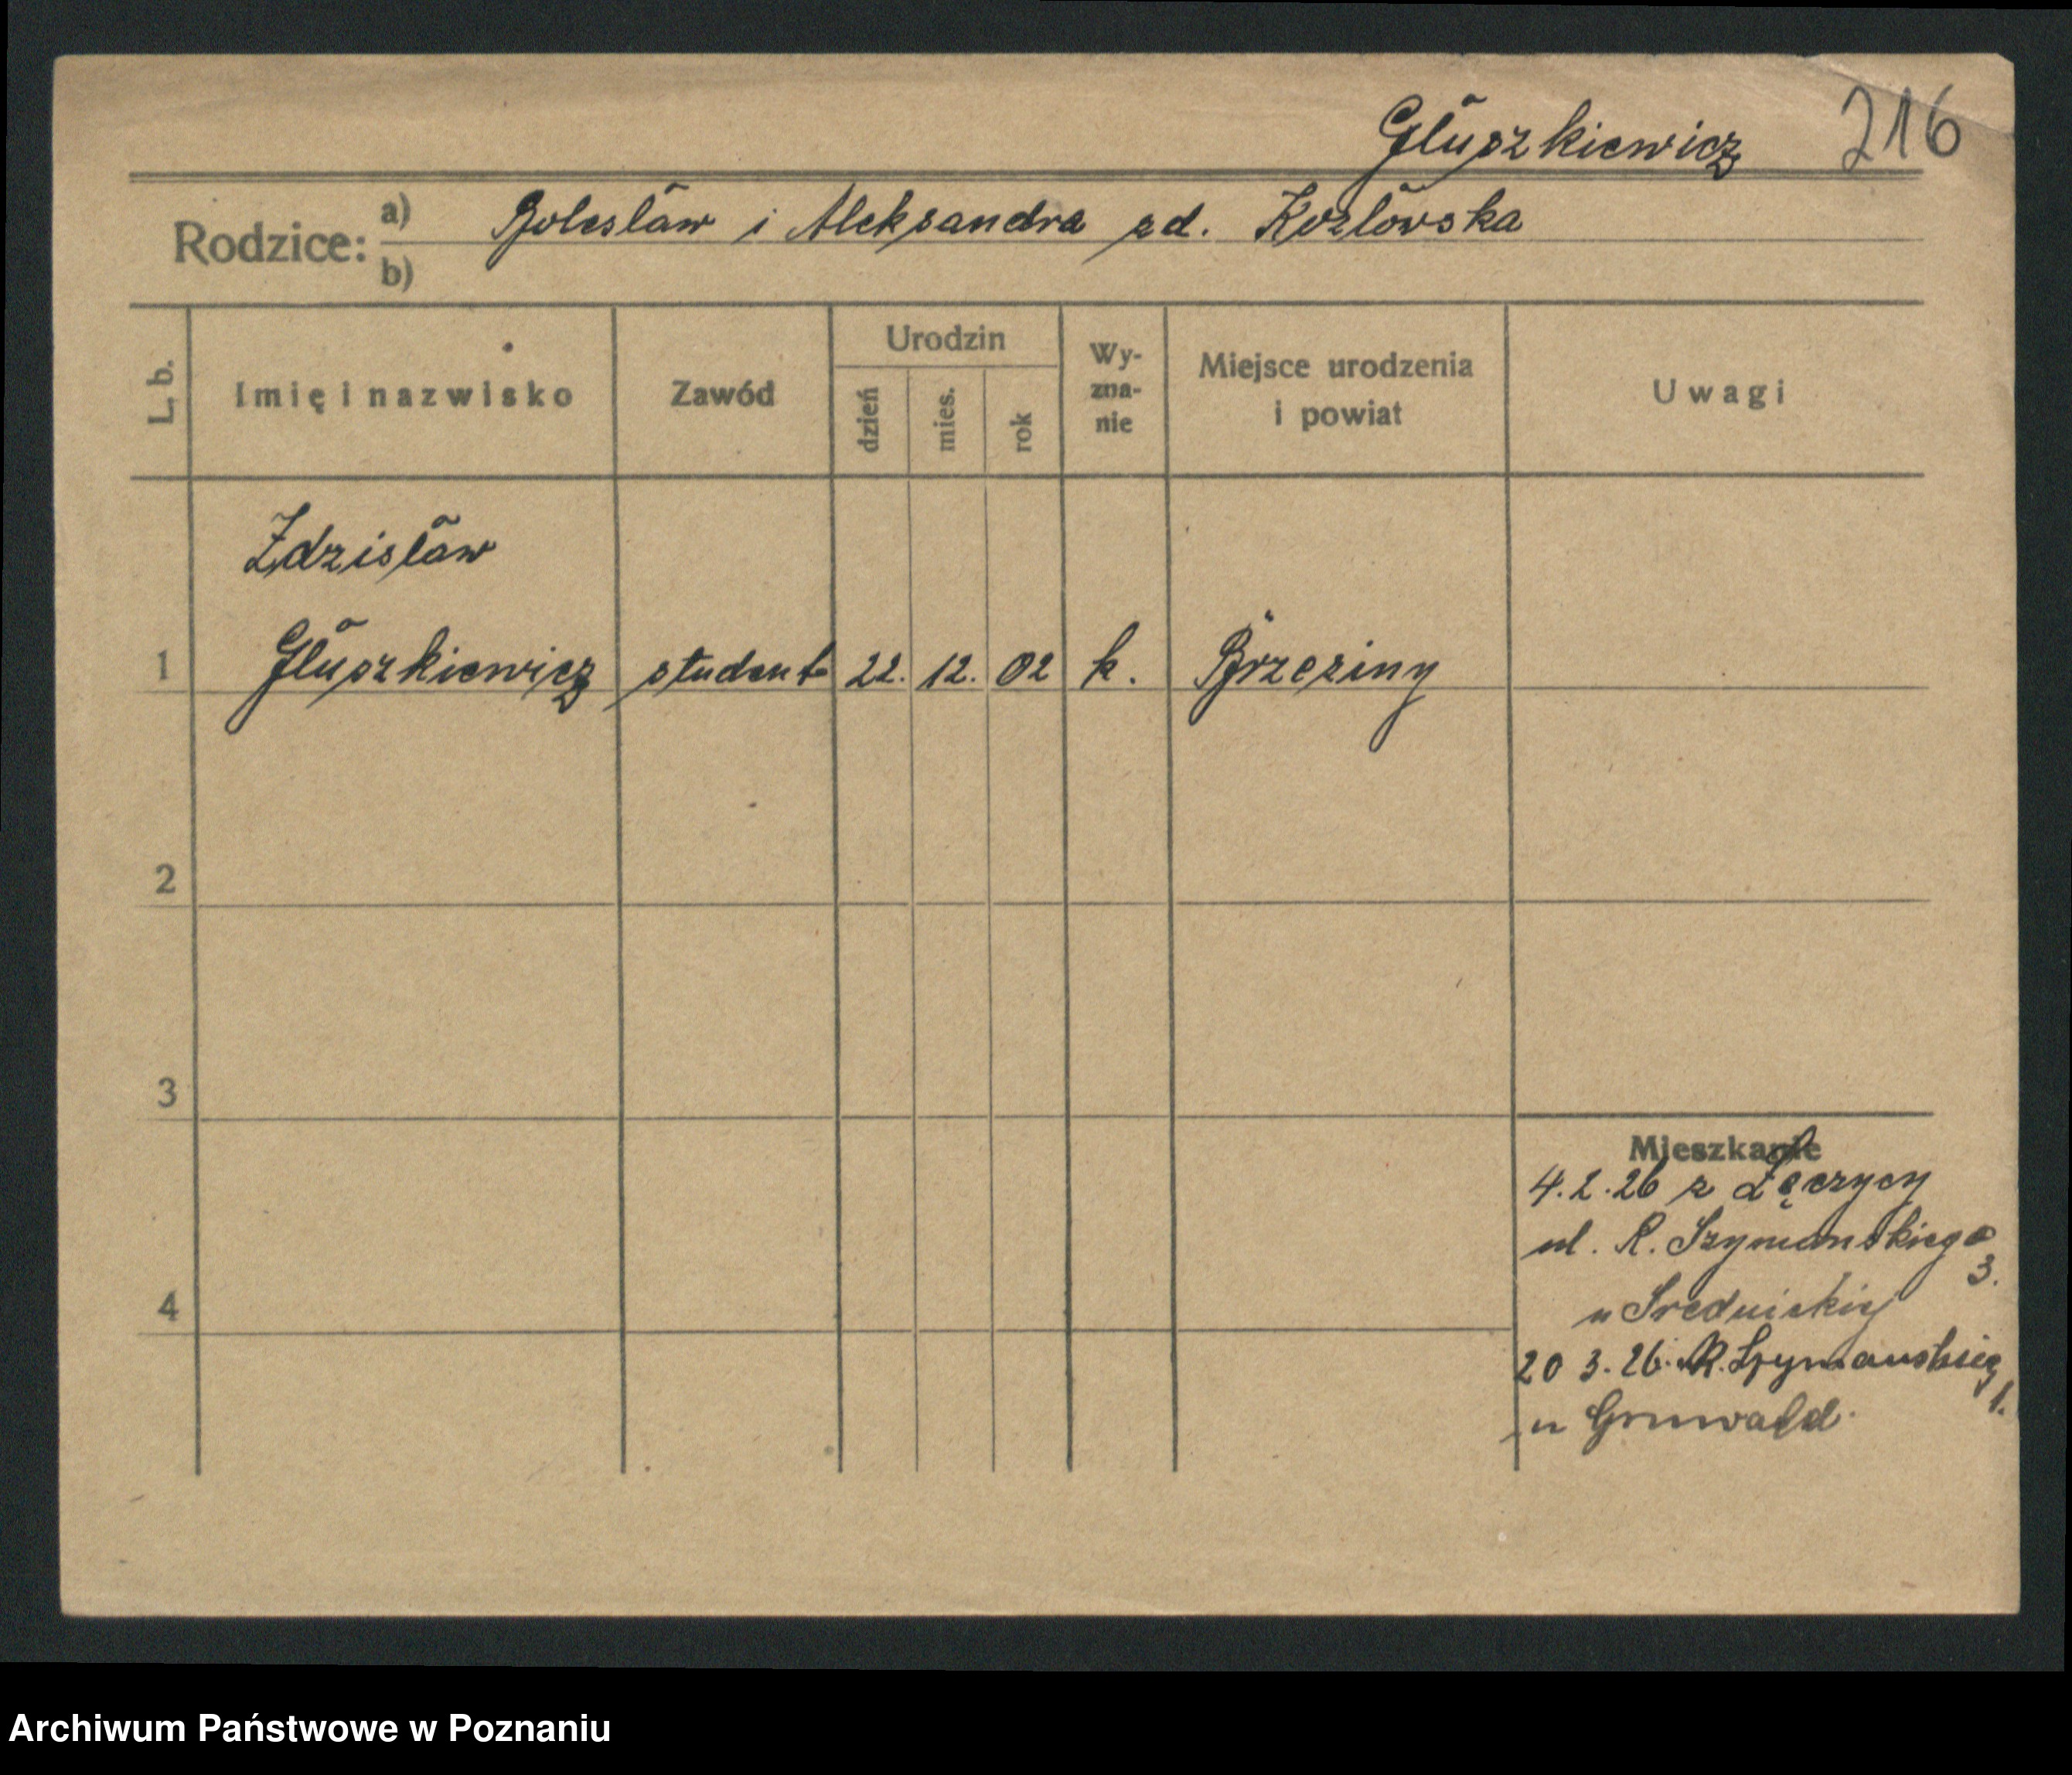 Głuszkiewicz 216
Rodzice: a) Bolesław i Aleksandra zd. Kozłowska
b)
L. b. Imię i nazwisko Zawód Urodzin dzień mies. rok Wy-
zna-
nie Miejsce urodzenia
i powiat Uwagi
Zdzisław
1 Głuszkiewicz student 22. 12. 02 k. Brzeziny
2
3
Mieszkanie
4.2.26 z Łęczycy
ul. R. Szymańskiego
3.
4 u Średnickiej
20 3.26. R. Szymańskieg
1.
u Grunwald.
Archiwum Państwowe w Poznaniu